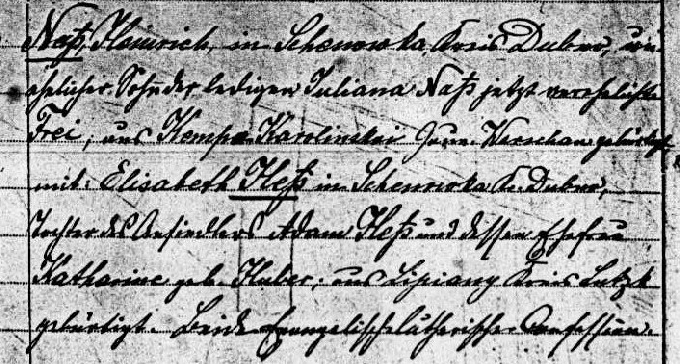 Naß, Heinrich, in Schenowka Kreis Dubno, un-
ehelicher Sohn der ledigen Juliana Naß jetzt verehelichte
Frei, aus Kempa Karolinski Guv. Warschau gebürtigt
mit: Elisabeth Heß in Schenowka Kr. Dubno,
Tochter des Ansiedlers Adam Heß und dessen Ehefrau
Katharine geb. Huber, aus Lipiany Kreis Lutzk
gebürtigt. Beide Evangelischlutherischer Confession.